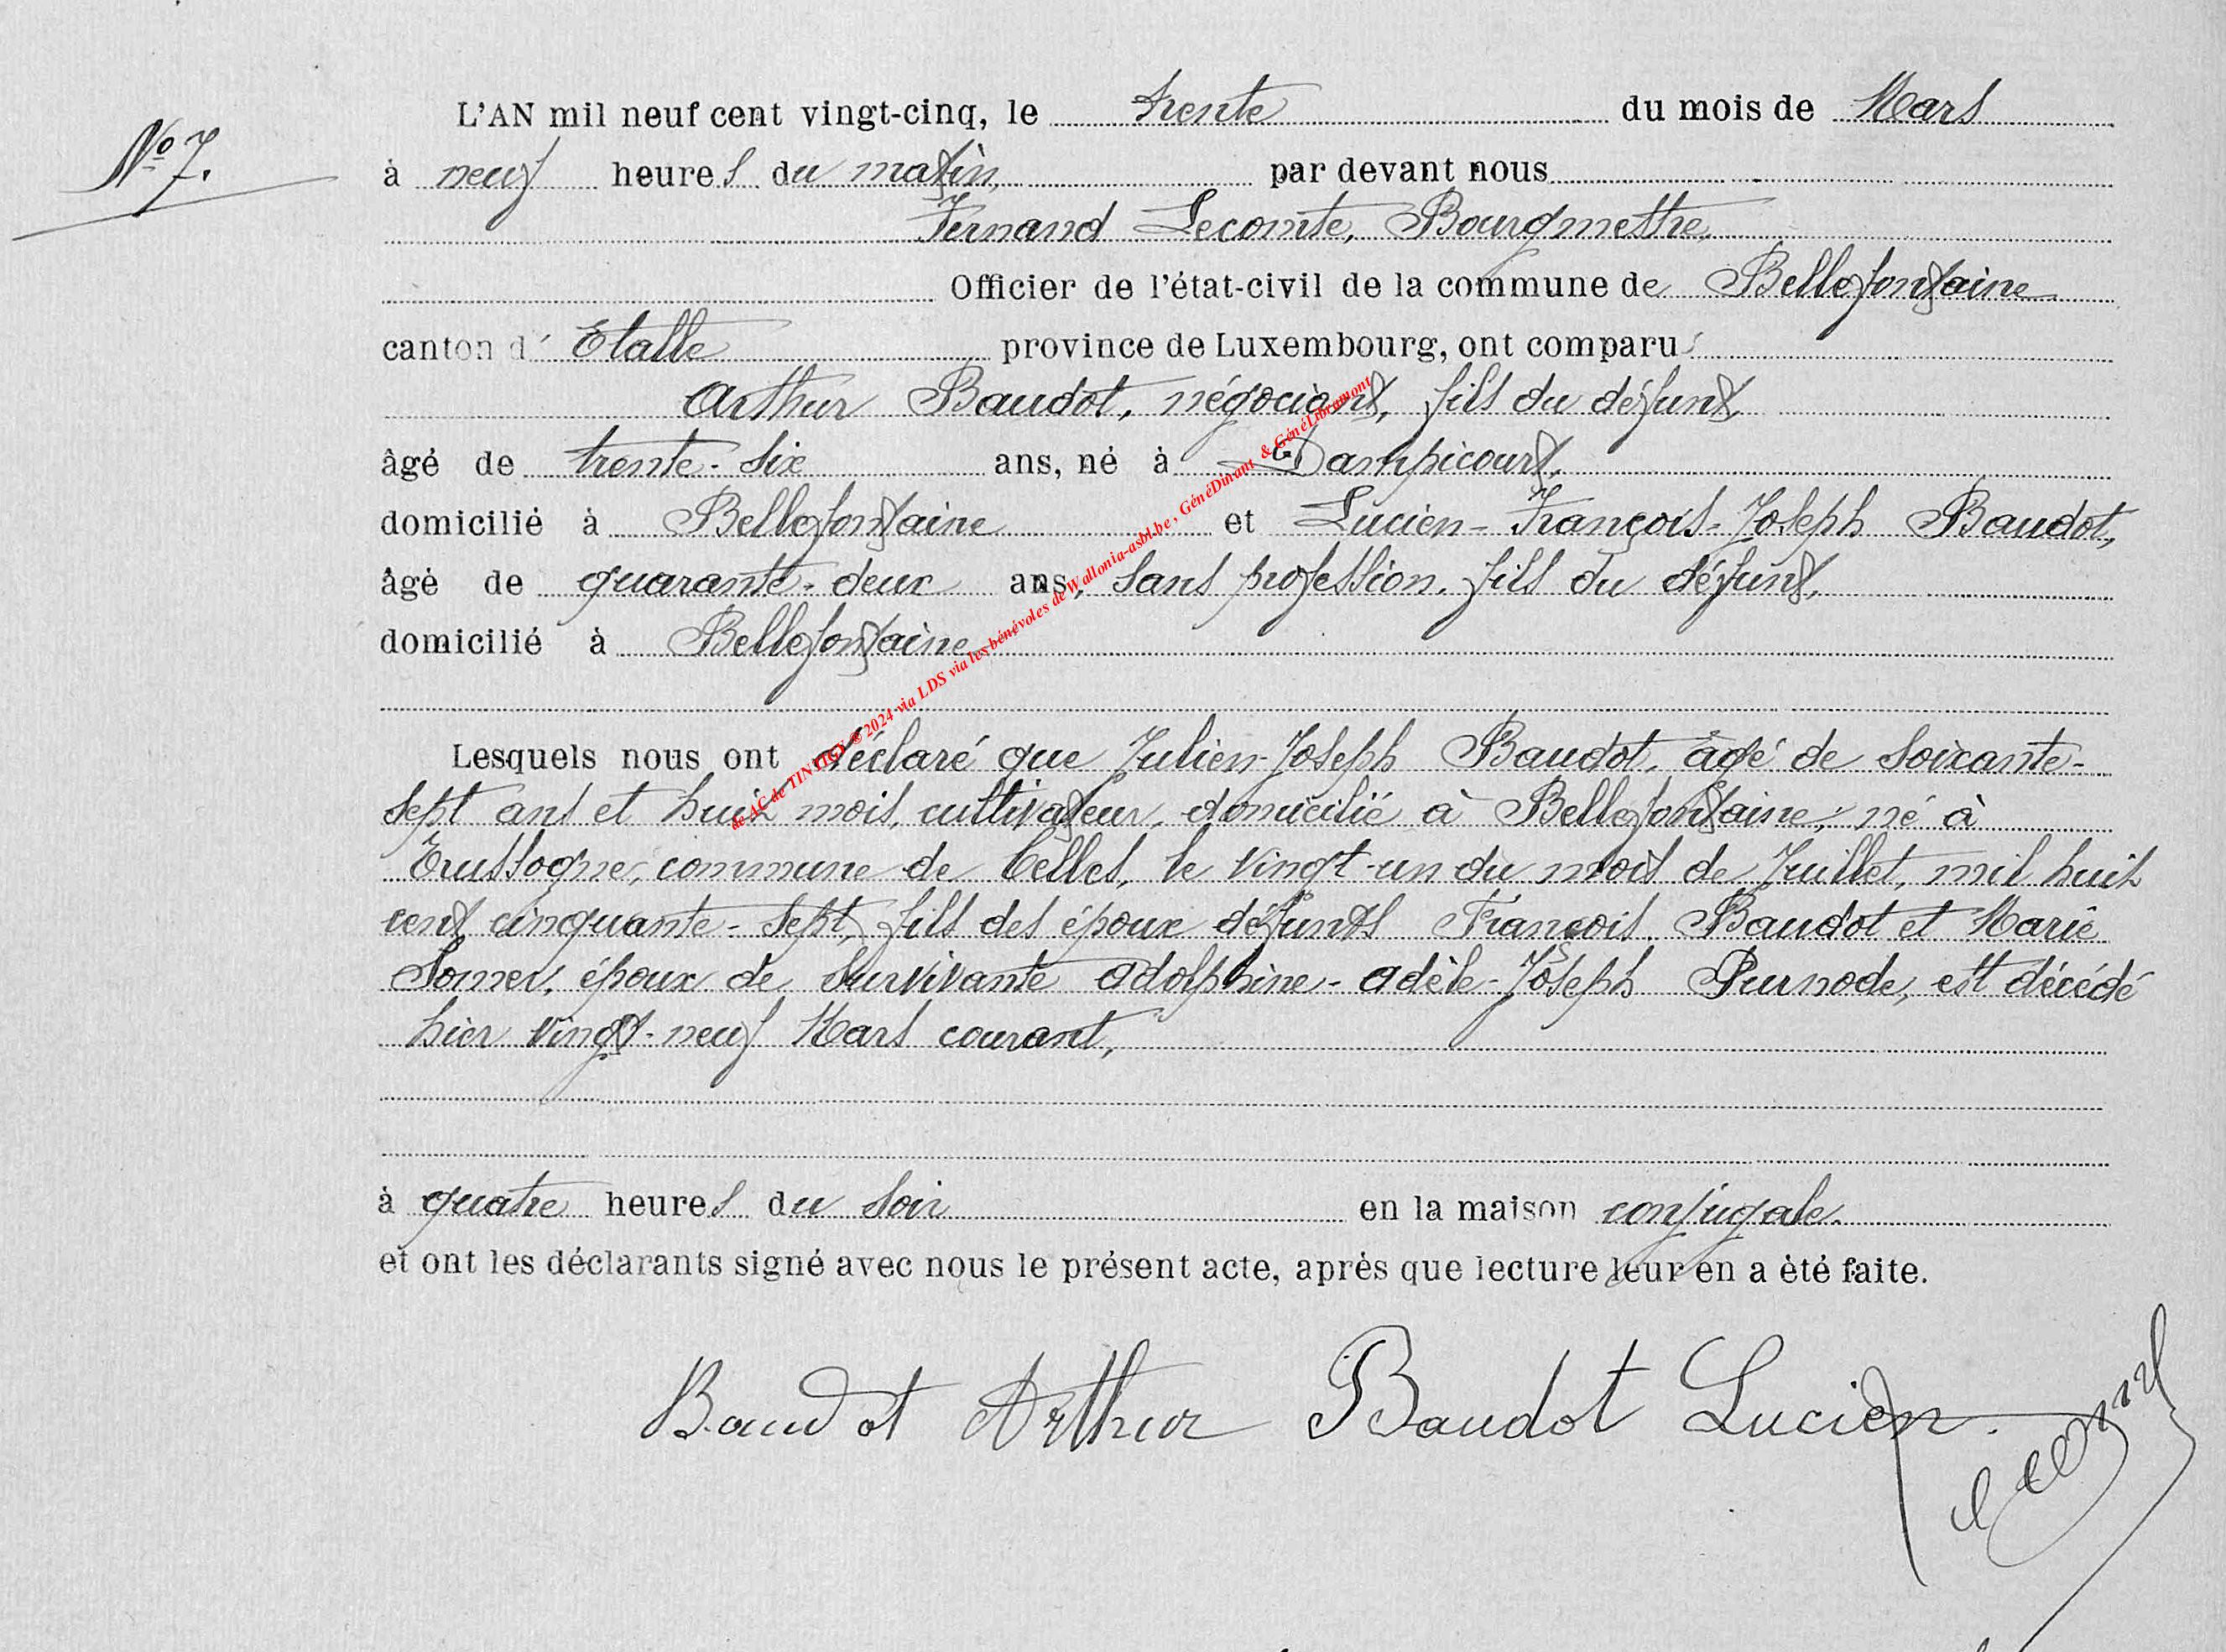 N° 7.
L'AN mil neuf cent vingt-cinq, le trente du mois de Mars
à neuf heures du matin, par devant nous
Fernand Lecomte, Bourgmestre,
Officier de l'état-civil de la commune de Bellefontaine
canton d' Etalle province de Luxembourg, ont comparu
Arthur Baudot, négociant, fils du défunt,
âgé de trente-six ans, né à Dampicourt,
domicilié à Bellefontaine et Lucien-François-Joseph Baudot,
âgé de quarante-deux ans, sans profession, fils du défunt,
domicilié à Bellefontaine
Lesquels nous ont déclaré que Julien-Joseph Baudot, âgé de soixante-
sept ans et huit mois, cultivateur, domicilié à Bellefontaine, né à
Trussogne, commune de Celles, le vingt-un du mois de Juillet, mil huit
cent cinquante-sept, fils des époux défunts François Baudot et Marie
époux de survivante Adolphine-Adèle-Joseph Purnode, est décédé
hier vingt-neuf Mars courant,
à quatre heures du soir en la maison conjugale.
et ont les déclarants signé avec nous le présent acte, après que lecture leur en a été faite.
Baudot Arthur Baudot Lucien.
de AC de TINTIGY © 2024 via LDS via les bénévoles de Wallonia-asbl.be, GénéDinant & GénéLibramont